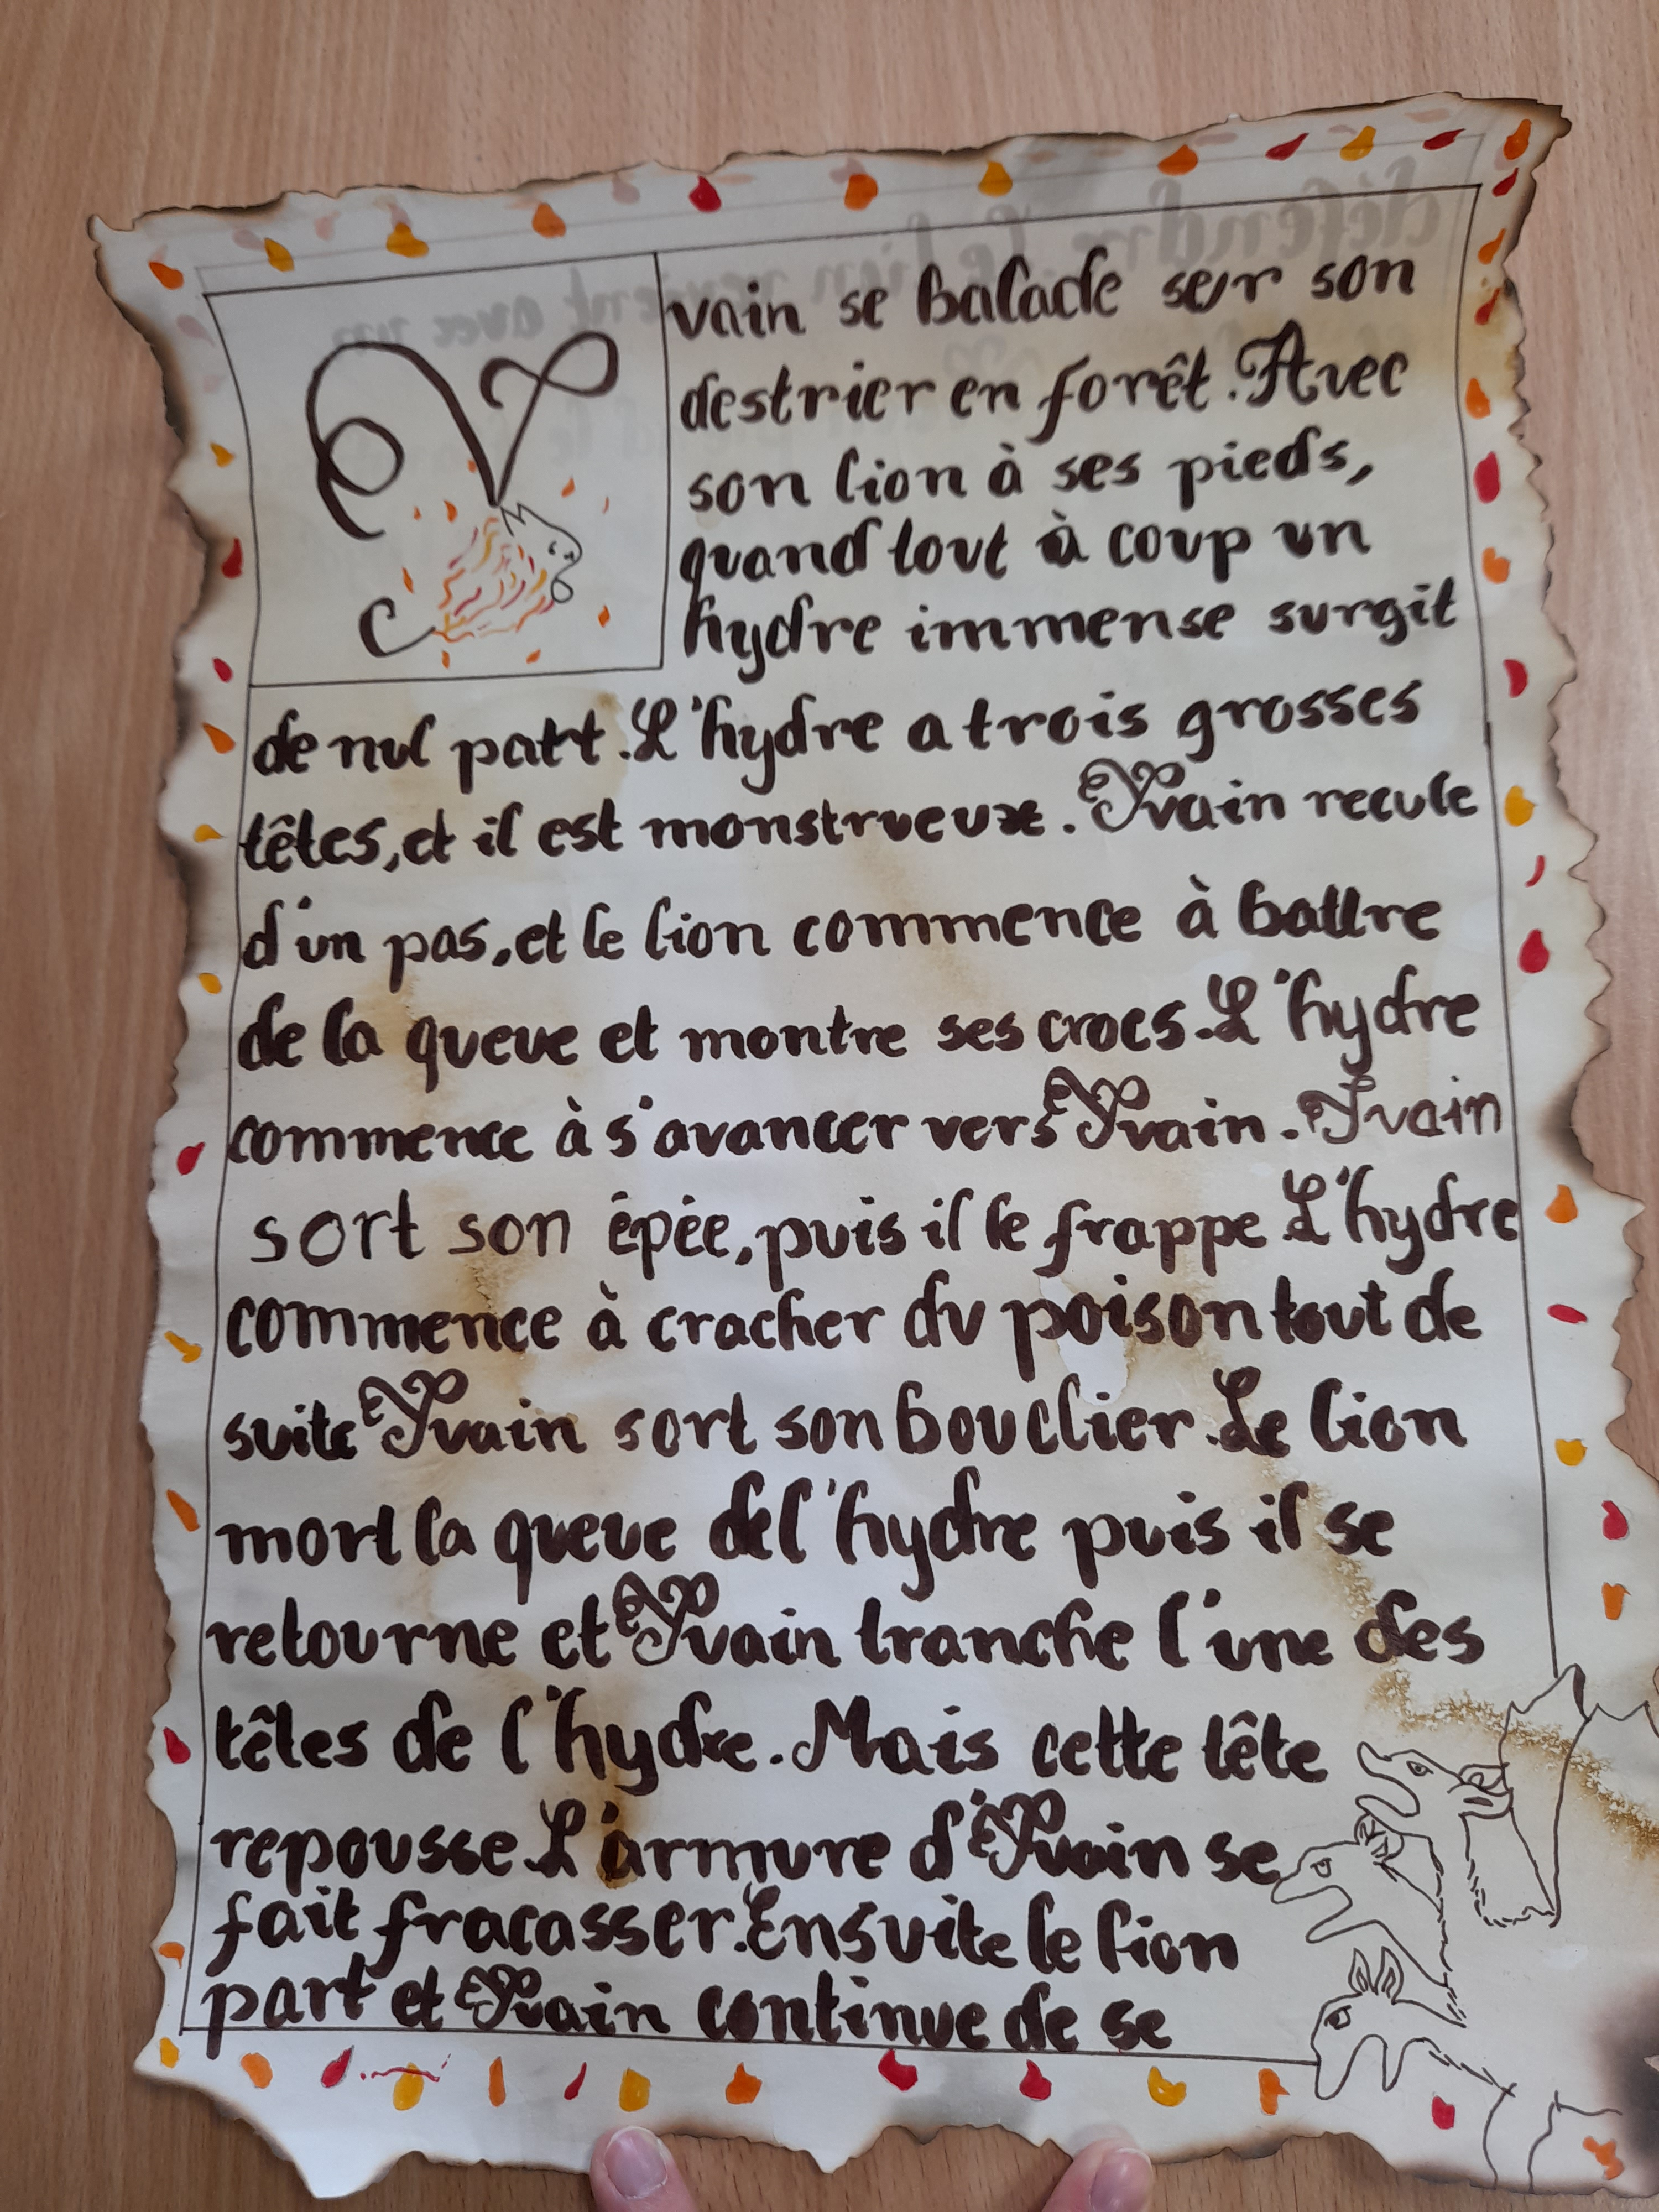 Yvain se balade sur son
destrier en forêt. Avec
son lion à ses pieds,
quand tout à coup un
hydre immense surgit
de nul part. L'hydre a trois grosses
têtes, et il est monstrueux. Yvain recule
d'un pas, et le lion commence à battre
de la queue et montre ses crocs. L'hydre
commence à s'avancer vers Yvain. Yvain
sort son épée, puis il le frappe L'hydre
commence à cracher du poison tout de
suite Yvain sort son bouclier. Le lion
mort la queue de l'hydre puis il se
retourne et Yvain tranche l'une des
têtes de l'hydre. Mais cette tête
repousse. L'armure d'Yvain se
fait fracasser. Ensuite le lion
part et Yvain continue de se